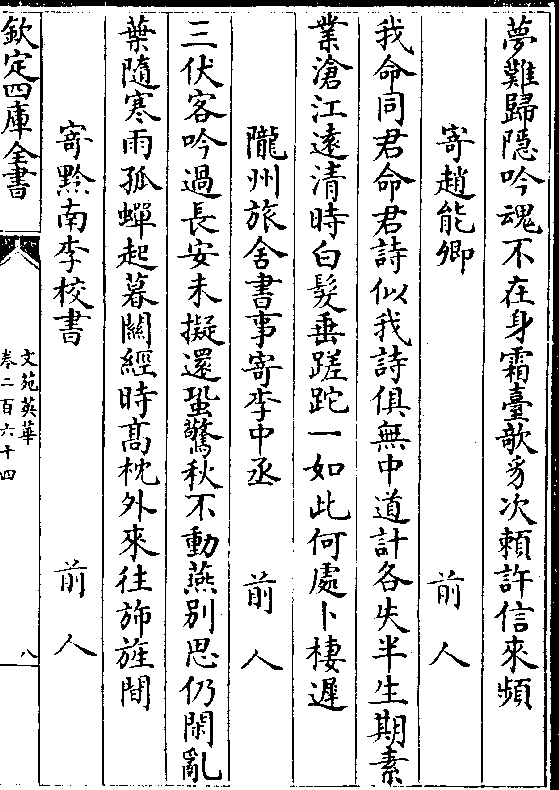 夢難歸隠吟魂不在身霜臺歌㢧次頼許信來頻
寄趙能卿 前人
我命同君命君詩似我詩俱無中道計各失半生期素
業滄江遠清時白髮垂蹉跎一如此何處卜棲遲
隴州旅舍書事寄李中丞 前人
三伏客吟過長安未擬還蛩驚秋不動燕别思仍閑亂
葉隨寒雨孤蟬起暮關經時髙枕外來往斾旌閒
寄黔南李校書 前人
欽定四庫全書
文苑英華
卷二百六十四
八